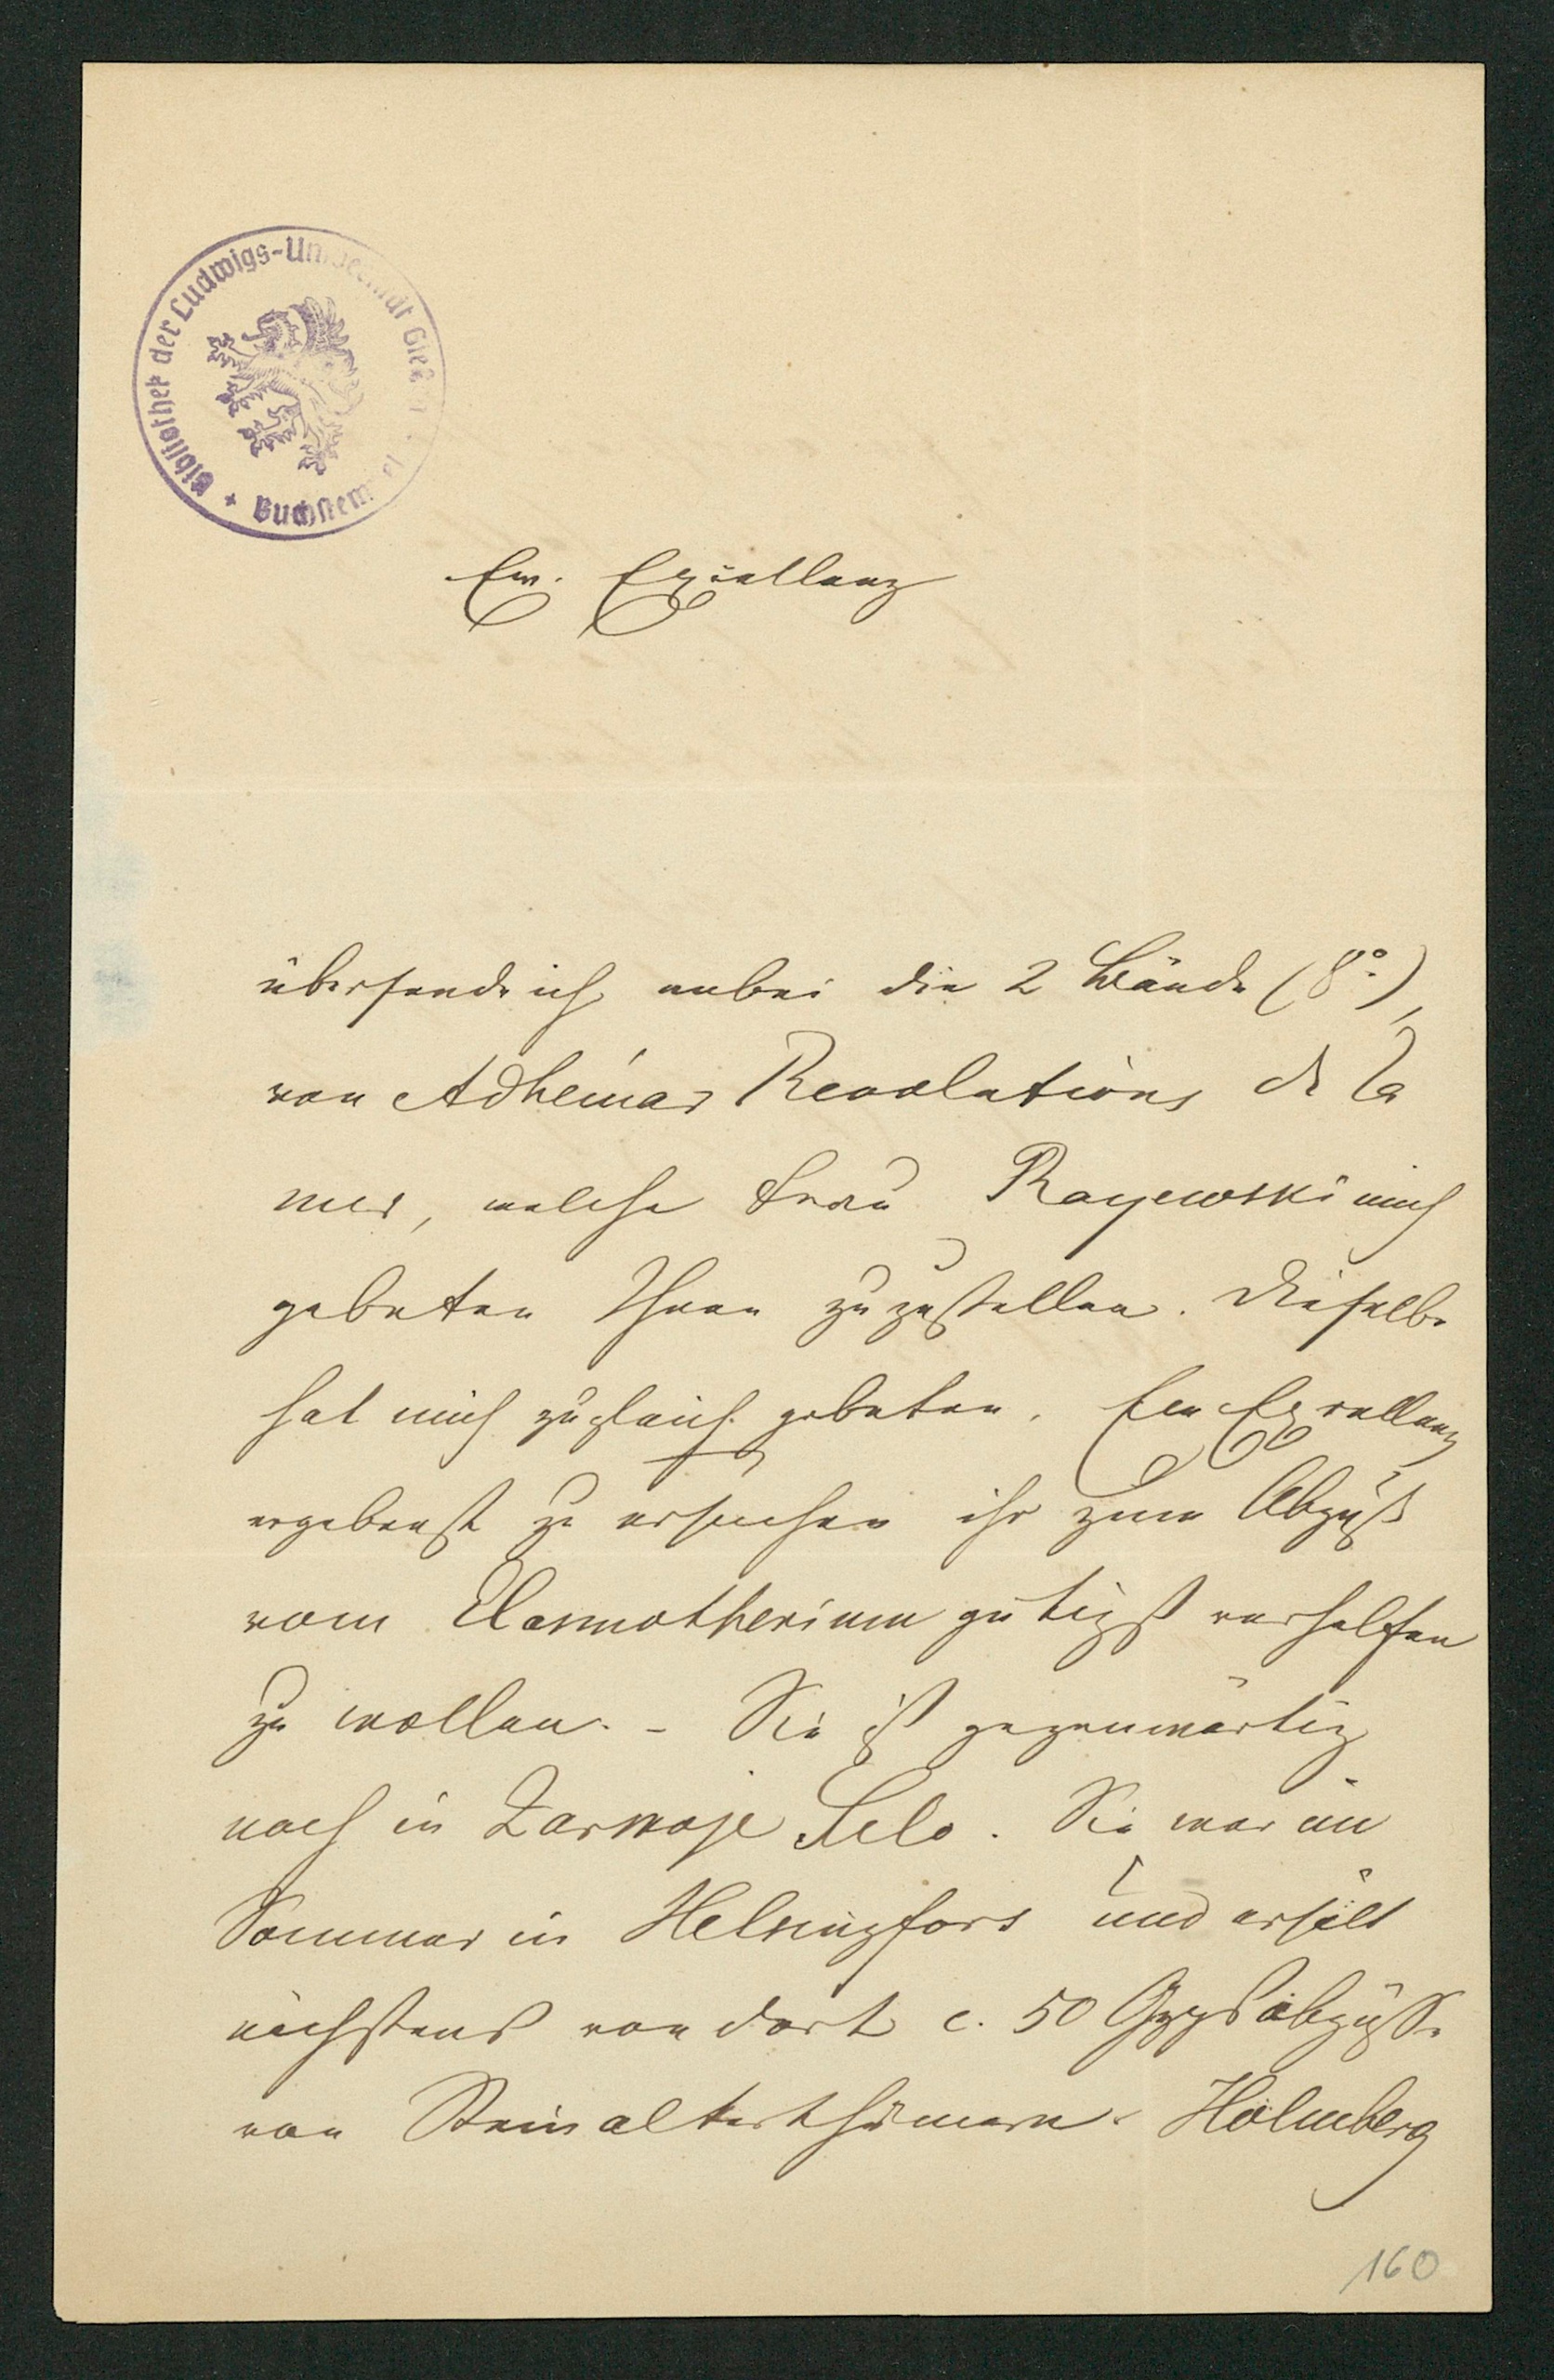 Bibliothek der Ludwigs-Universität Gießen
+ Buchstempel
Ew. Excellenz
übersende ich anbei die 2 Bände (8°.),
von Adhémar Revolutions de la
mer, welche Frau Rayewski mich
gebeten Ihnen zuzustellen. Dieselbe
hat mich zugleich gebeten, Ew Excellenz
ergebenst zu ersuchen ihr zum Abguß
vom Elasmotherium gütigst verhelfen
zu wollen. - Sie ist gegenwärtig
noch in Zarskoje Selo. Sie war im
Sommer in Helsingfors und erhält
nächstens von dort c. 50 Gypsabgüsse
von Steinalterthümern. Holmberg
160